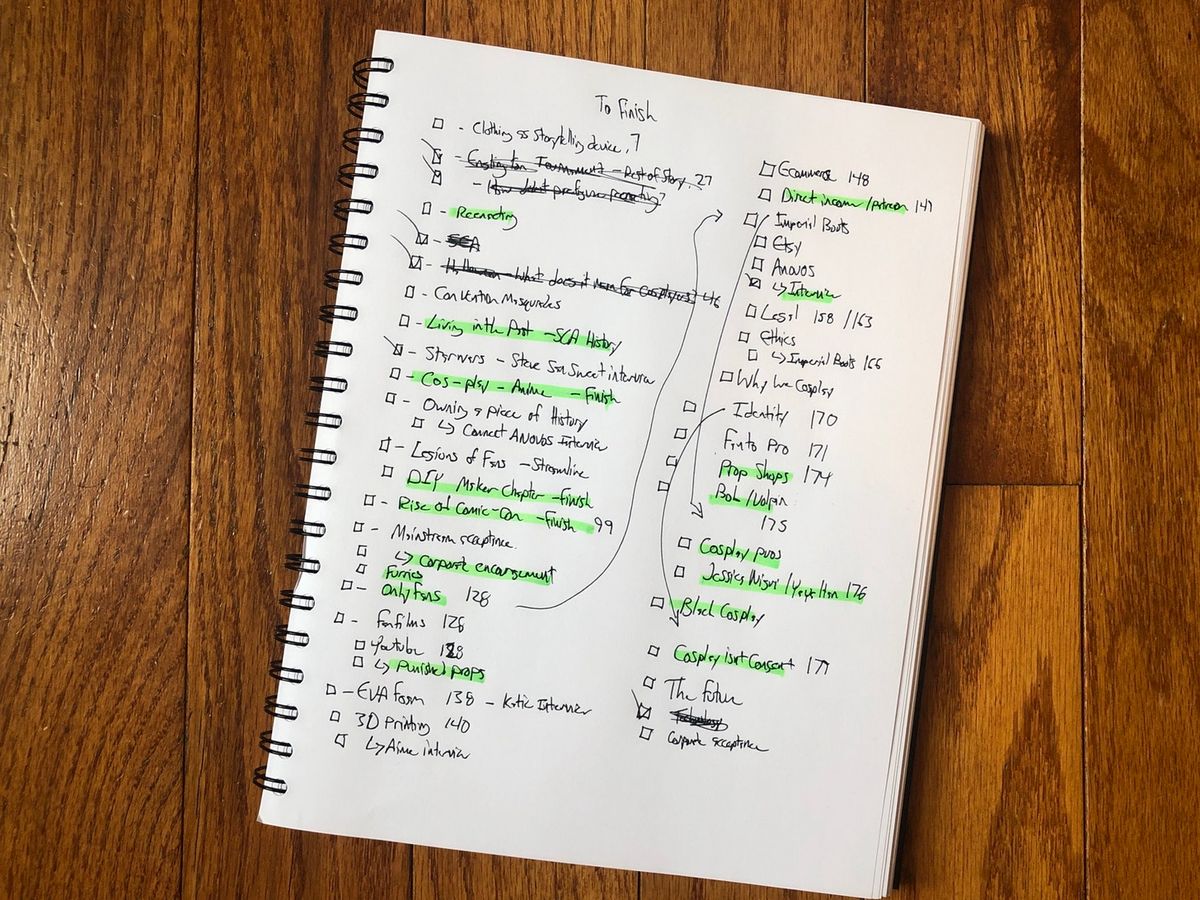 To Finish
- Clothing as Storytelling device, 7
- Tournament - Rest of Story, 27
- How did it prefigure reenacting?
- Reenacting
- SCA
- What does it mean for cosplayers? 46
- Convention Masquerades
- Living in the Past - SCA History
- Starwars - Steve Sansweet interview
- Cos-play - Anime - Finish
- Owning a piece of History
↳ Connect ANOVOS Interview
- Legions of Fans - Streamline
DIY Maker Chapter - finish
- Rise of Comic-Con - finish 99
- Mainstream acceptance.
↳ Corporate encouragement
Furries
- Onlyfans 128
- Fanfilms 126
Youtube 128
↳ Punished props
- EVA Foam 138 - Katie Interview
3D Printing 140
↳ Aime interview
Ecommerce 148
Direct income/patreon 147
Imperial Boots
Etsy
Anovos
↳ Interview
Legal 158 / 163
Ethics
↳ Imperial Boots 166
Why We Cosplay
Identity 170
Fan to Pro 171
Prop Shops 174
Bob/Volpin
175
Cosplay pros
Jessica Nigri/Yaya Han 176
Black Cosplay
Cosplay isn't Consent 177
The Future
Technology
Corporate acceptance